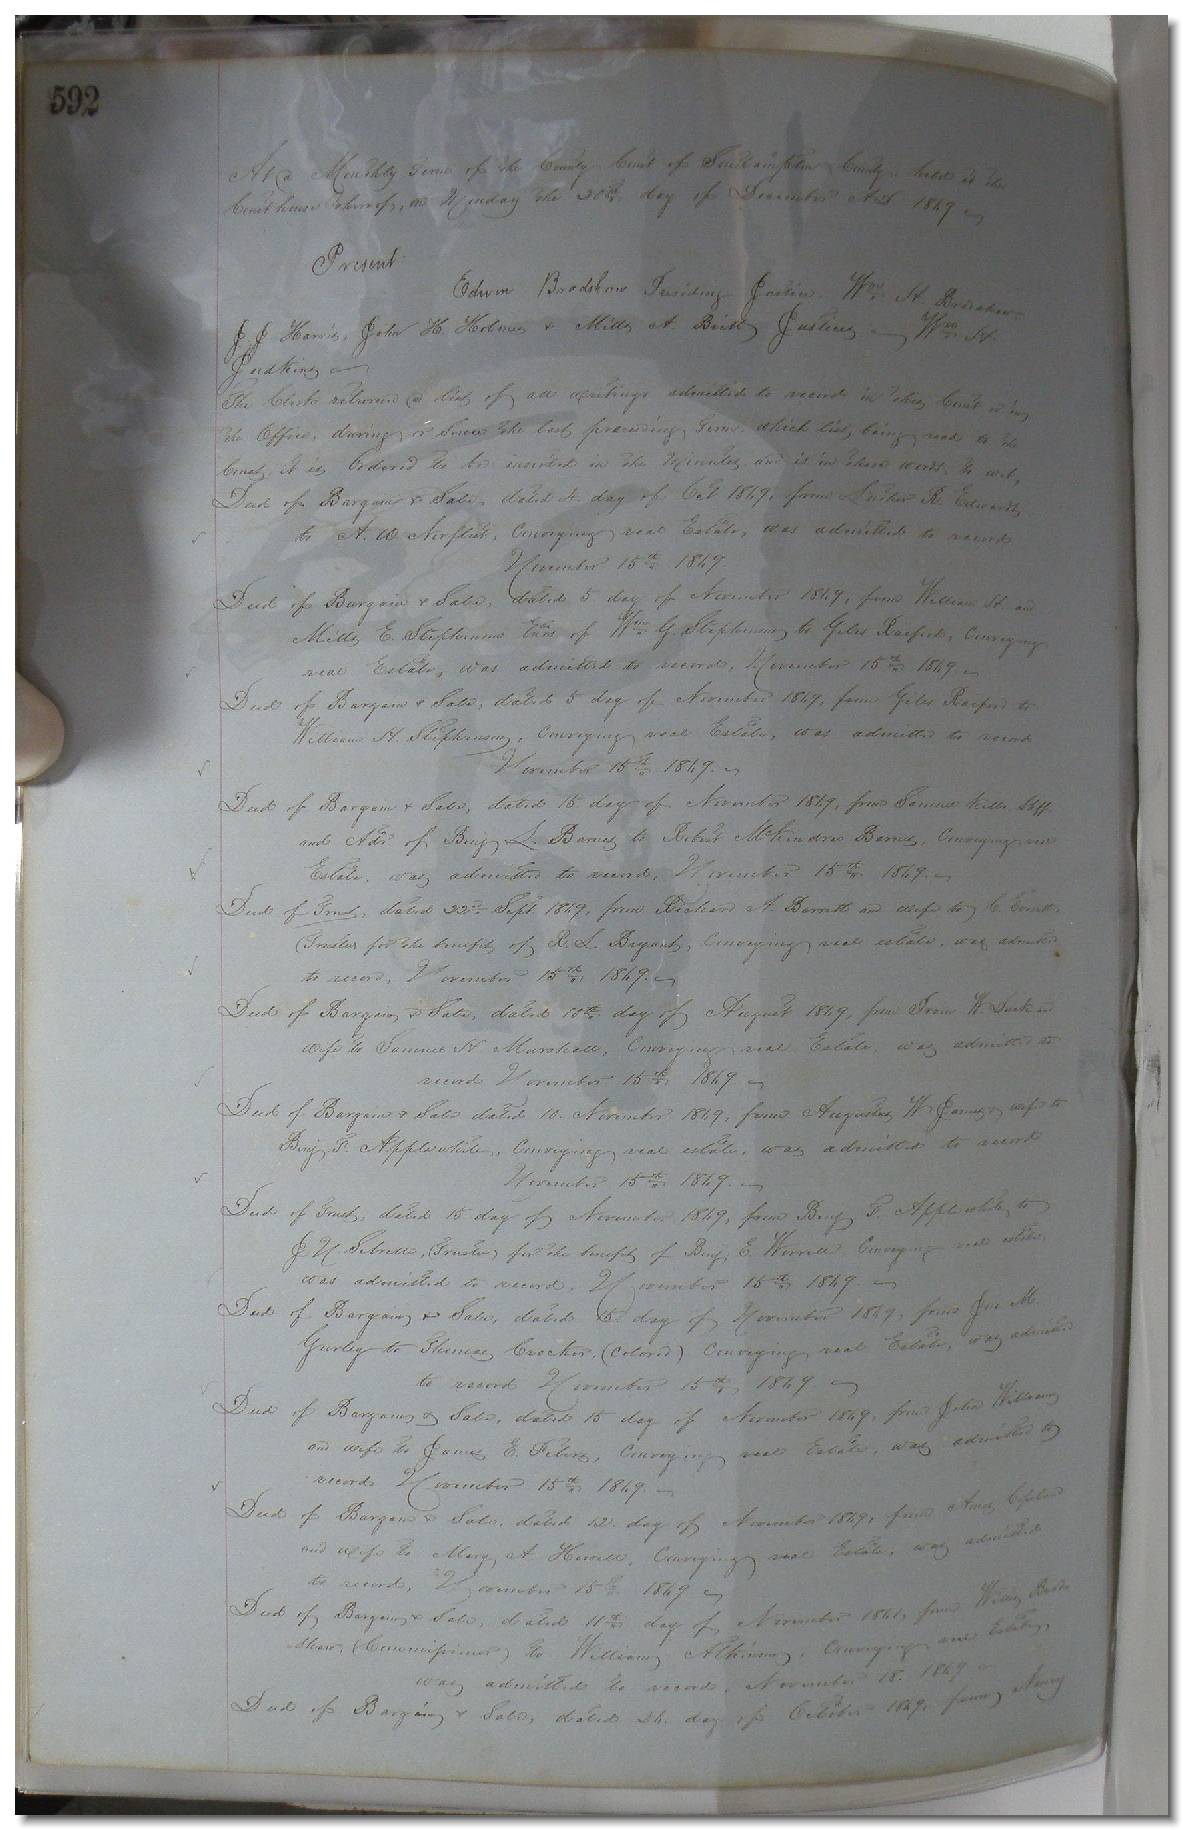 592
At a Monthly Term of the County Court of Southampton County held at the
Courthouse thereof, on Monday the 20th day of December A.D. 1869
Present
Edwin Bradshaw Presiding Justice Wm H.
J J Harris, John H. Holmes & Mills A. Britt Justices Wm H.
Judkins
The Clerk returned a list of all writings admitted to record in this Court or in
the Office, during or since the last preceding Term, which list, being read to the
Court, it is Ordered to be inserted in the Minutes and is in these words, to wit,
Deed of Bargain & Sale, dated 4. day of Oct 1869, from R. Edwards
to A. W. Norfleet, Conveying real Estate, was admitted to record
November 15th 1869.
Deed of Bargain & Sale, dated 5 day of November 1869, from William H. and
Mills E. Stephenson Exors of Wm G. Stephenson to Giles Raeford, Conveying
real Estate, was admitted to record, November 15th 1869
Deed of Bargain & Sale, dated 5 day of November 1869, from Giles Raeford to
William H. Stephenson, Conveying real Estate, was admitted to record
November 15th 1869.
Deed of Bargain & Sale, dated 15 day of November 1869, from Samuel Kello Shff
and Adr. of Benj. L. Barnes to Robert McKendree Barnes, Conveying real
Estate, was admitted to record, November 15th 1869.
Deed of Trust, dated 22nd Sept 1869, from Richard A. Barrett and wife to C.
Trustee for the benefit of R. L. Bryant, Conveying real estate, was admitted
to record, November 15th 1869.
Deed of Bargain & Sale, dated 10th day of August 1869, from W. and
wife to Samuel N. Marshall, Conveying real Estate, was admitted to
record November 15th 1869
Deed of Bargain & Sale dated 10. November 1869, from Augustus W. James & wife to
Benj. F. Applewhite, Conveying real estate, was admitted to record
November 15th 1869.
Deed of Trust, dated 15 day of November 1869, from Benj F. Applewhite to
J N Sebrell, (Trustee) for the benefit of Benj. E. Worrell Conveying real estate,
was admitted to record, November 15th 1869.
Deed of Bargain & Sale, dated 15 day of November 1869, from Jno M.
Gurley to Thomas Crocker, (Colored) Conveying real Estate, was admitted
to record November 15th, 1869.
Deed of Bargain & Sale, dated 15 day of November 1869, from John Williams
and wife to James E. Conveying real Estate, was admitted to
record November 15th 1869.
Deed of Bargain & Sale, dated 12. day of November 1869, from Amos Copeland
and wife to Mary A. Conveying real Estate, was admitted
to record, November 15th 1869
Deed of Bargain & Sale, dated 11th day of November from Bradshaw
(Commissioner) to William Atkinson, Conveying real Estate,
was admitted to record, November 18. 1869
Deed of Bargain & Sale, dated 24. day of October 1869, from Henry